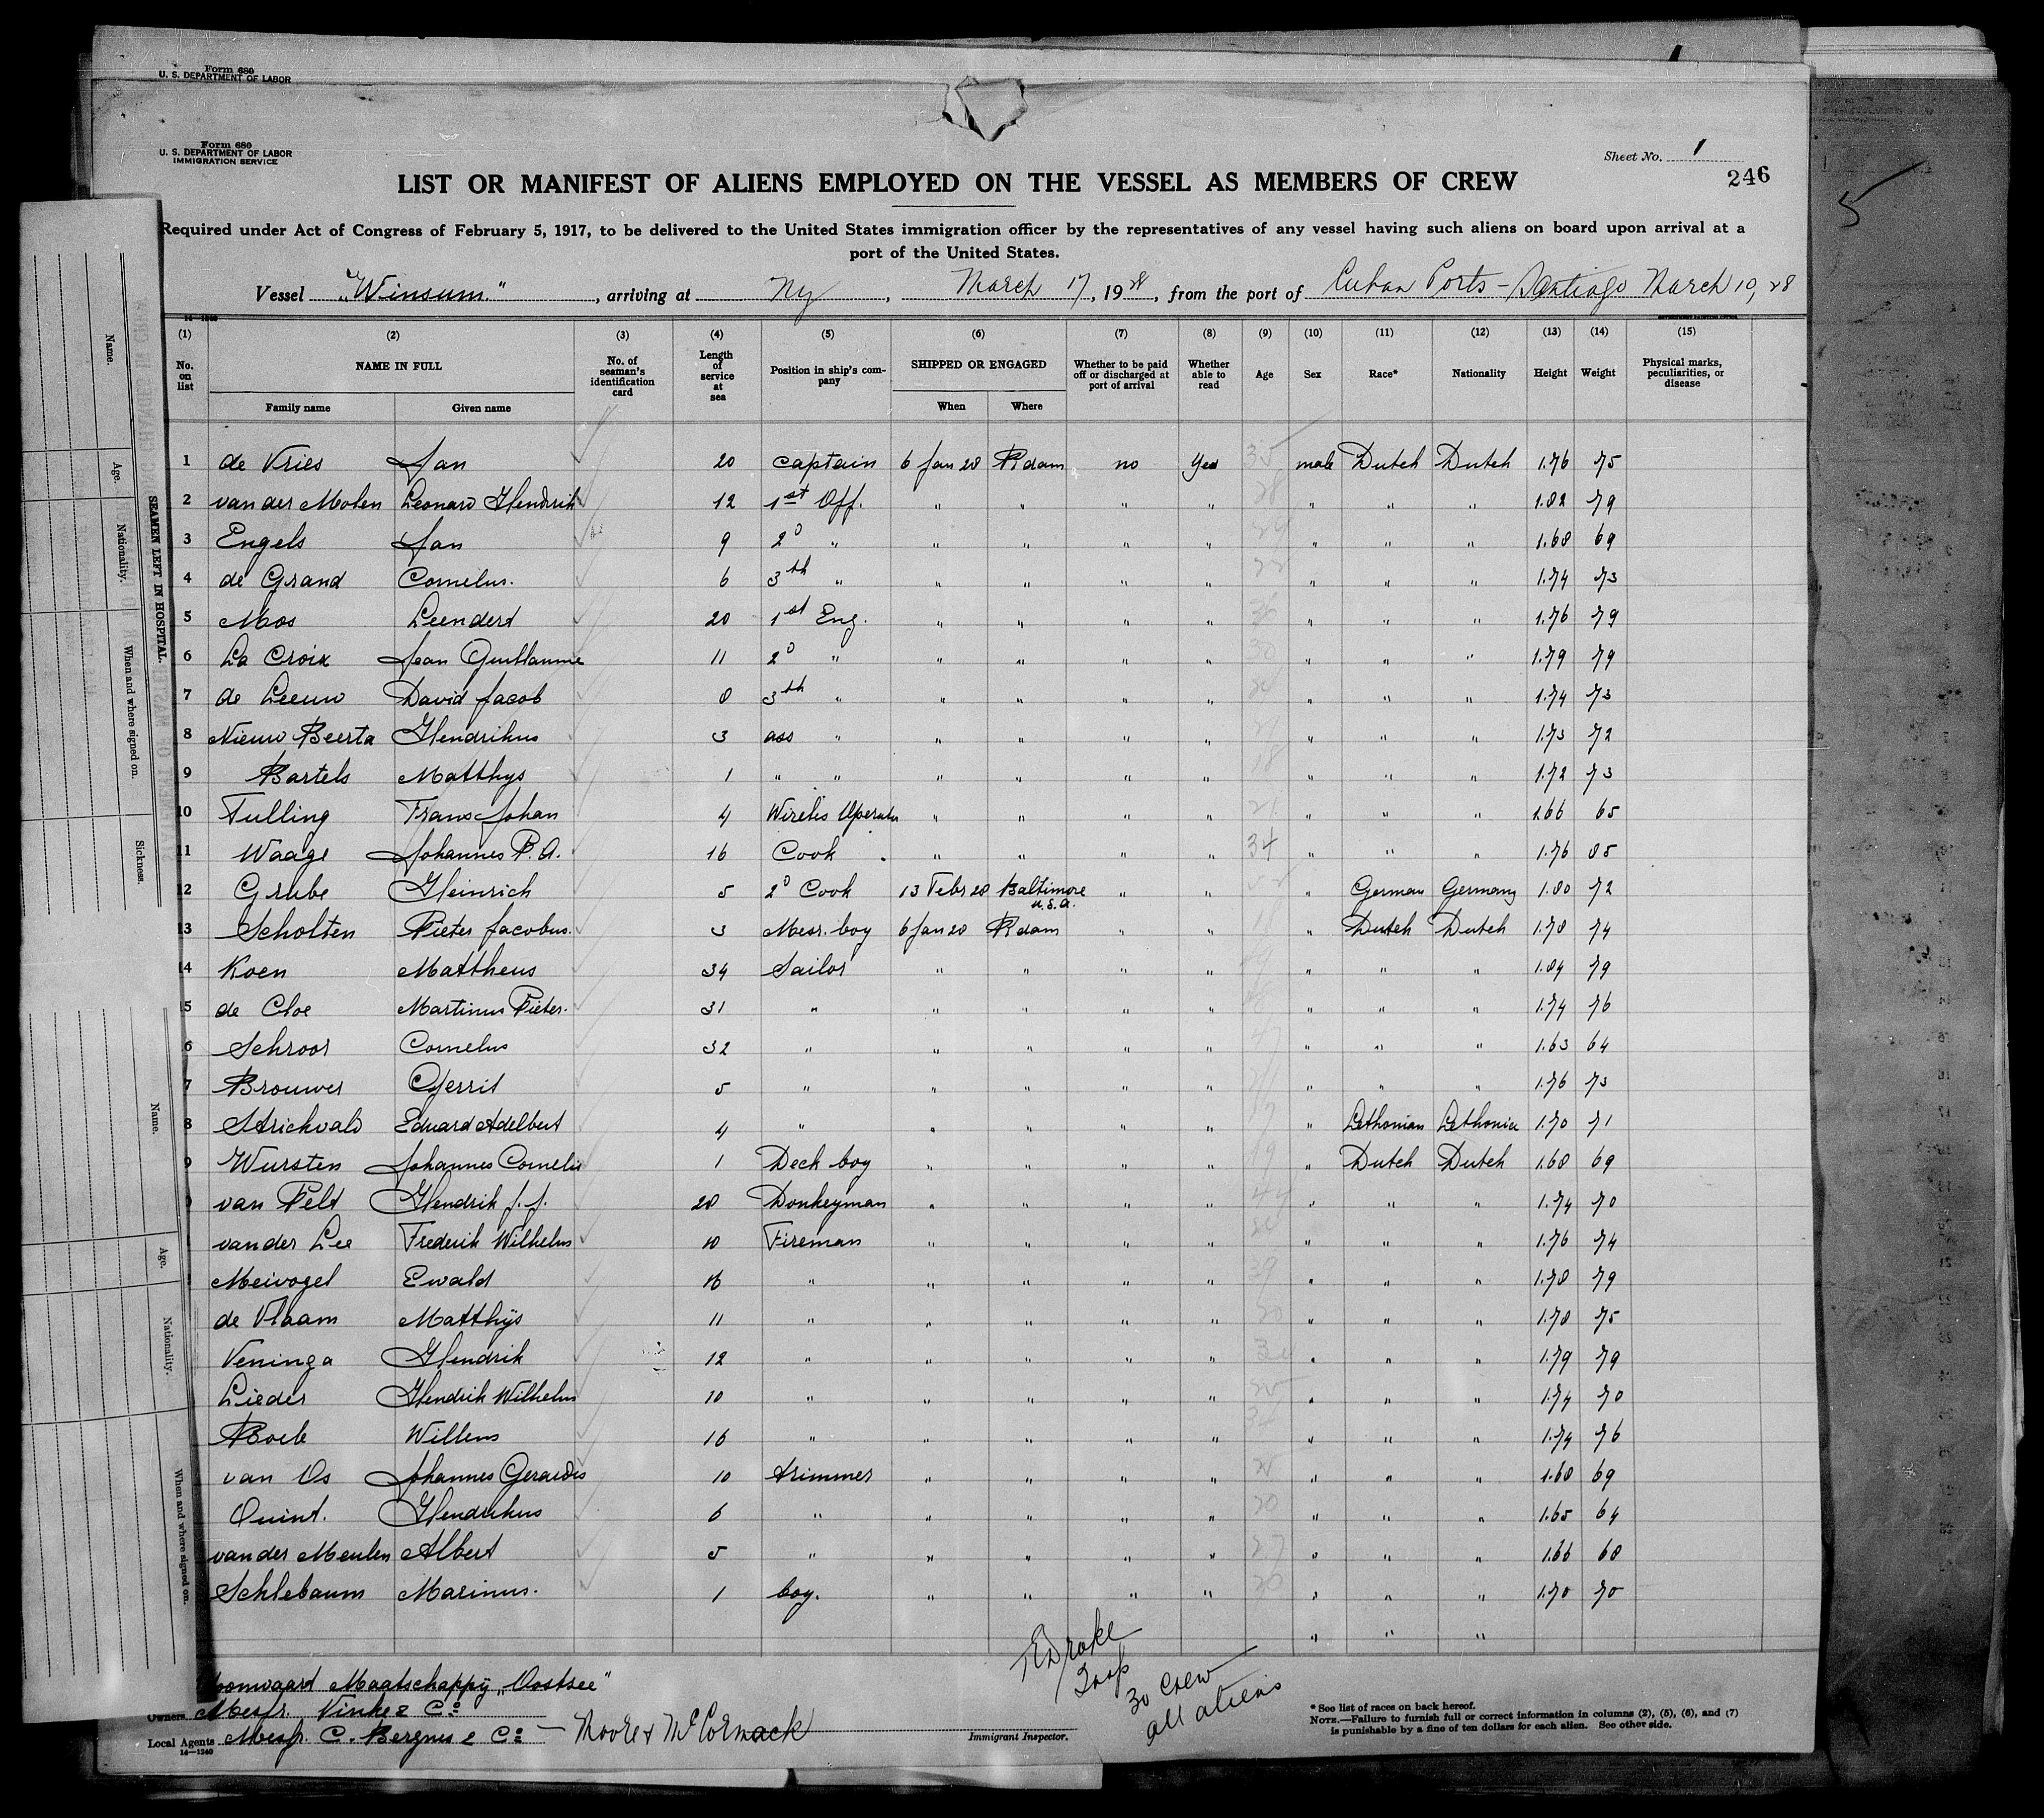 Form 680
U. S. DEPARTMENT OF LABOR
Form 680
U. S. DEPARTMENT OF LABOR
IMMIGRATION SERVICE
Sheet No. 1
LIST OR MANIFEST OF ALIENS EMPLOYED ON THE VESSEL AS MEMBERS OF CREW
246
5
Required under Act of Congress of February 5, 1917, to be delivered to the United States immigration officer by the representatives of any vessel having such aliens on board upon arrival at a
port of the United States.
Vessel "Winsum", arriving at Ny, March 17, 1928, from the port of Cuban Ports - Santiago March 10, 28
(1) (2) (3) (4) (5) (6) (7) (8) (9) (10) (11) (12) (13) (14) (15)
No. on list NAME IN FULL No. of seaman's identification card Length of service at sea Position in ship's company SHIPPED OR ENGAGED Whether to be paid off or discharged at port of arrival Whether able to read Age Sex Race* Nationality Height Weight Physical marks, peculiarities, or disease
Family name Given name When Where
1 de Vries Jan 20 captain 6 Jan 28 R dam no Yes 35 male Dutch Dutch 1.76 75
2 van der Molen Leonard Hendrik 12 1st Off. " " " " 28 " " " 1.82 79
3 Engels Jan 9 2d " " " " " " " " 1.68 69
4 de Grand Cornelus. 6 3th " " " " " " " " 1.74 73
5 Mos Leendert 20 1st Eng. " " " " " " " 1.76 79
6 La Croix Jean Guillaume 11 2d " " " " " 30 " " " 1.79 79
7 de Leeuw David Jacob 8 3th " " " " " " " " 1.74 73
8 Nieuw Beerta Hendrikus 3 ass " " " " " " " " 1.73 72
9 Bartels Matthys 1 " " " " " " 18 " " " 1.72 73
10 Tulling Frans Johan 4 Wirelis Operator " " " " 21 " " " 1.66 65
11 Waage Johannes P. A. 16 Cook " " " " 34 " " " 1.76 85
12 Grube Heinrich 5 2d Cook 13 Febr 28 Baltimore U.S.A. " " " German Germany 1.80 72
13 Scholten Pieter Jacobus. 3 Mesr. boy 6 Jan 28 R dam " " " Dutch Dutch 1.78 74
14 Koen Mattheus 34 Sailor " " " " " " " 1.84 79
15 de Cloe Martinus Pieter. 31 " " " " " " " " 1.74 76
6 Schroor Cornelus 32 " " " " " 47 " " " 1.63 64
7 Brouwer Gerrit 5 " " " " " " " " 1.76 73
8 Strickvald Eduard Adelbert 4 " " " " " " Lethonian Lethonia 1.70 71
9 Wursten Johannes Cornelis 1 Deck boy " " " " 19 " Dutch Dutch 1.68 69
van Pelt Hendrik J. J. 28 Donkeyman " " " " 44 " " " 1.74 70
van der Lee Frederik Wilhelm 10 Fireman " " " " " " " 1.76 74
Meivogel Ewald 16 " " " " " 39 " " " 1.78 79
de Vlaam Matthijs 11 " " " " " 30 " " " 1.78 75
Veninga Hendrik 12 " " " " " " " " 1.79 79
Lieder Hendrik Wilhelm 10 " " " " " 25 " " " 1.74 70
Willem 16 " " " " " 34 " " " 1.74 76
van Os Johannes Gerardus 10 trimmer " " " " 25 " " " 1.68 69
Quint. Hendrikus 6 " " " " " 20 " " " 1.65 64
van der Meulen Albert 5 " " " " " 27 " " " 1.66 68
Schlebaum Marinus. 1 boy. " " " " 20 " " " 1.70 70
" " "
Stoomvaart Maatschappij "Oostzee"
Owners Messr. Vinke & Co
Local Agents Messr. C. Bergnis & Co - Moore & McCormack
14-1240
TEDrake
Insp
30 crew
all aliens
Immigrant Inspector.
* See list of races on back hereof.
NOTE.—Failure to furnish full or correct information in columns (2), (5), (6), and (7)
is punishable by a fine of ten dollars for each alien. See other side.
SEAMEN LEFT IN HOSPITAL.
Name.
Age.
Nationality.
When and where signed on.
Sickness.
Name.
Age.
Nationality.
When and where signed on.